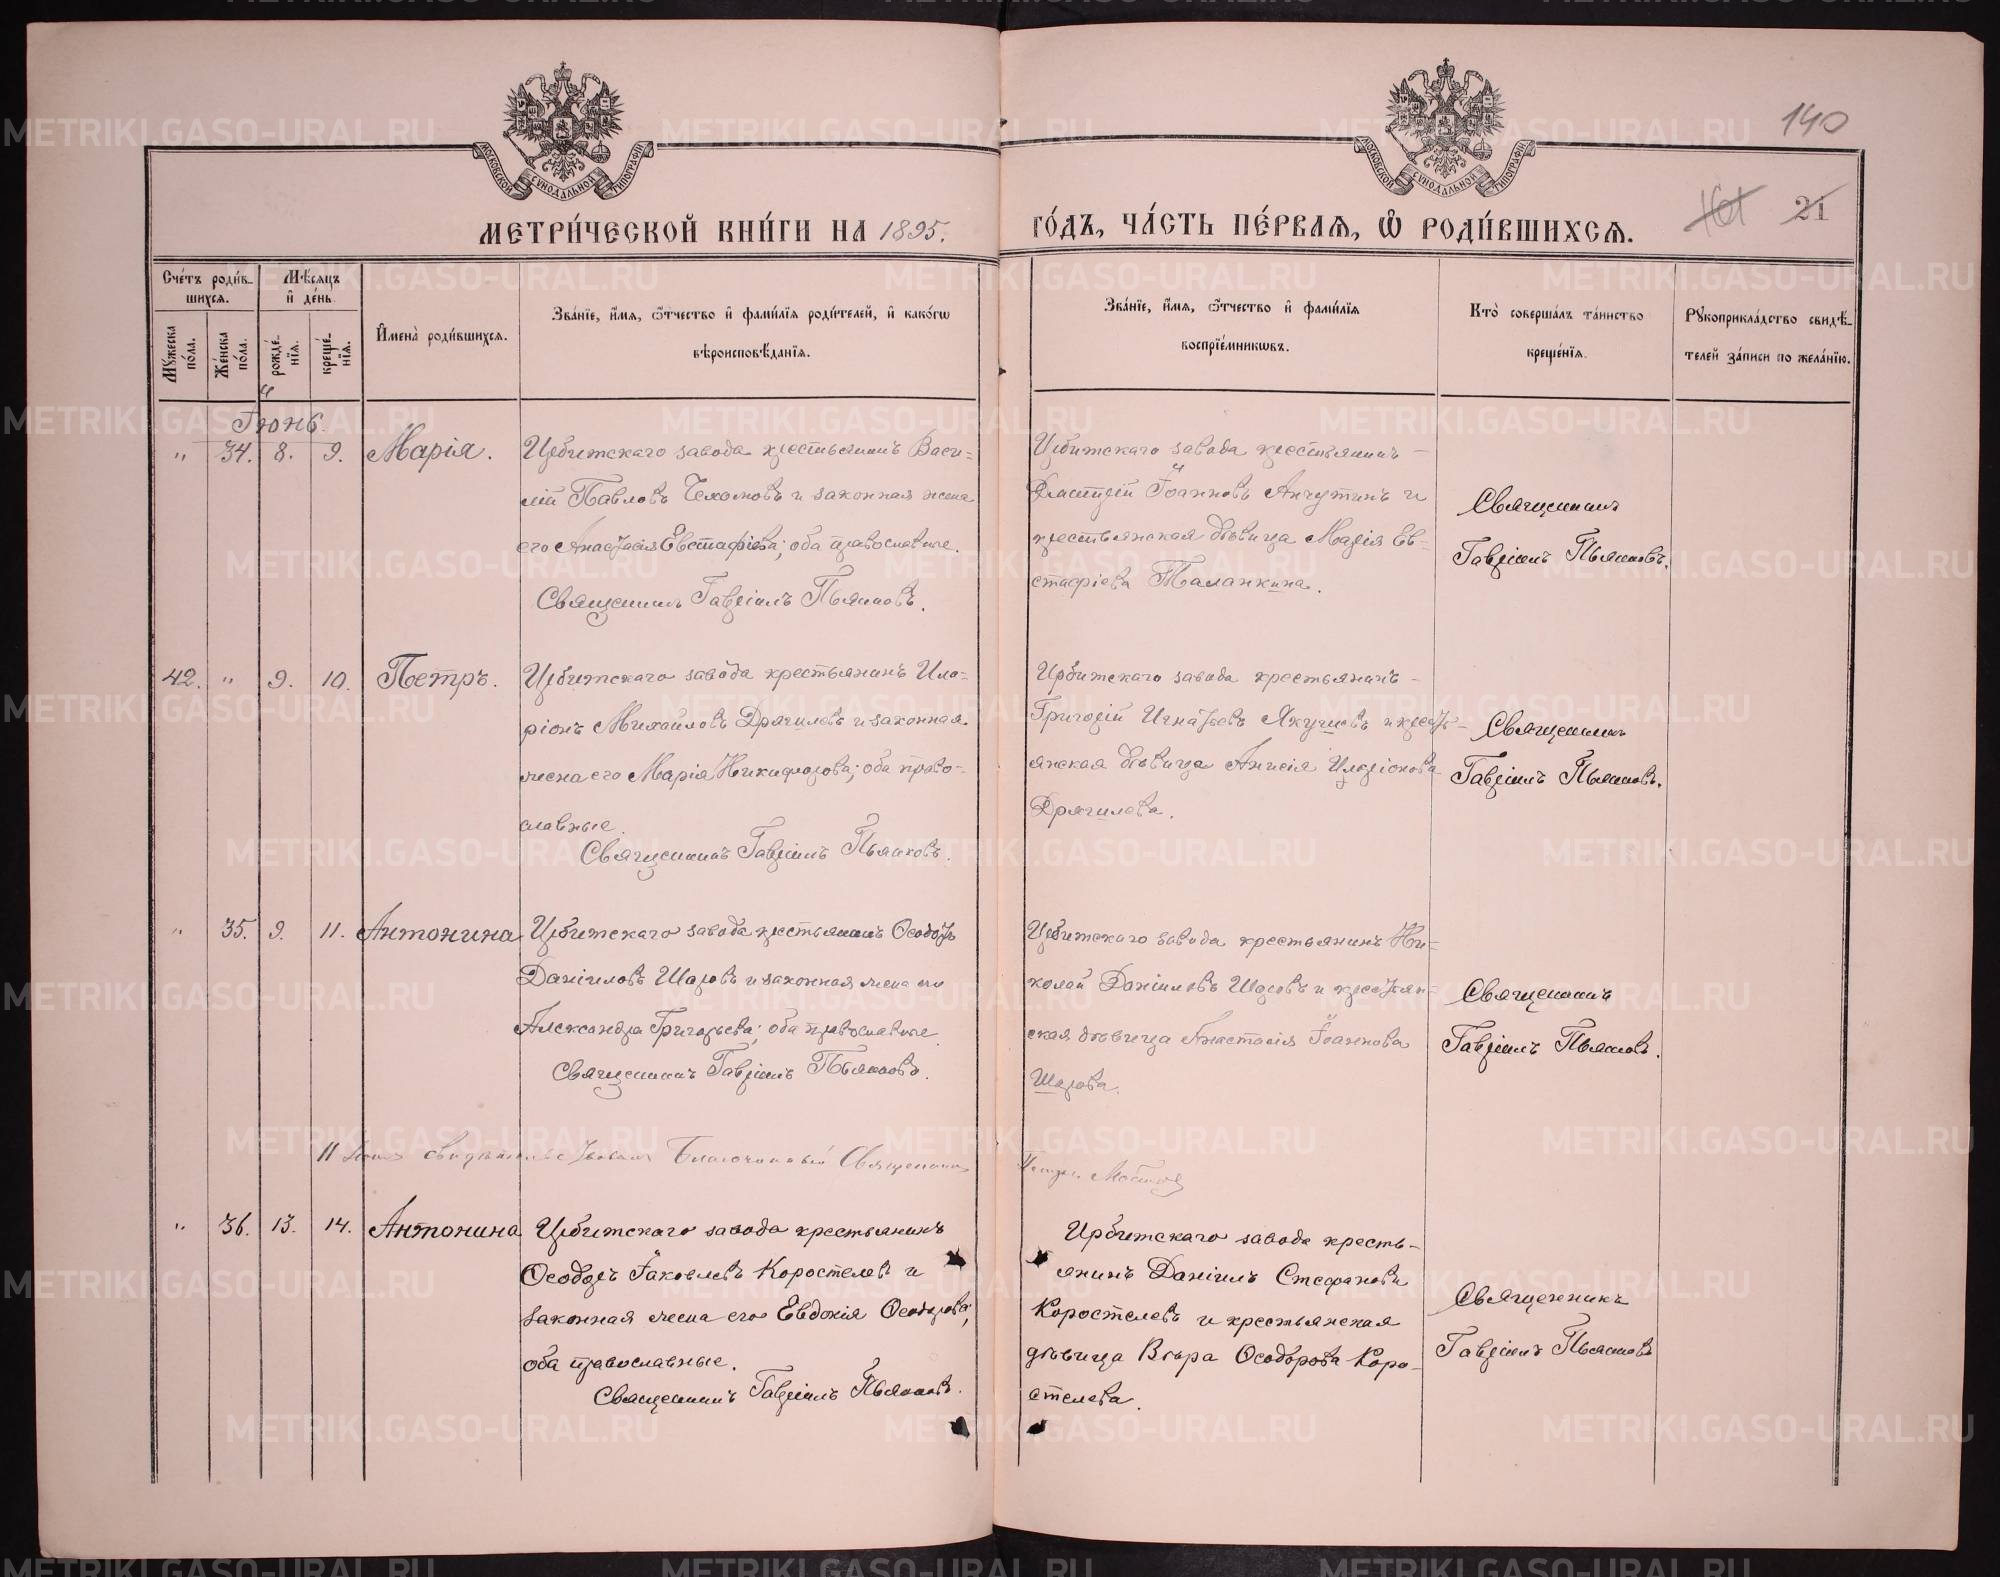 140
МОСКОВСКОЙ СѴНОДАЛЬНОЙ ТИПОГРАФІИ
МОСКОВСКОЙ СѴНОДАЛЬНОЙ ТИПОГРАФІИ
МЕТРИ́ЧЕСКОЙ КНИ́ГИ НА 1895.
ГО́ДЪ, ЧА́СТЬ ПЕ́РВАЯ, Ѽ РОДИ́ВШИХСЯ.
21
Сче́тъ роди́в-
шихся.
Мѣ́сяцъ
и҆ де́нь.
Мꙋ́жеска по́ла.
Же́нска по́ла.
рожде́нїя.
креще́нїя.
И҆мена̀ роди́вшихся.
Зва́нїе, и҆́мя, ѻ҆́тчество и҆ фами́лїя роди́телей, и҆ како́гѡ
вѣроисповѣ́данїя.
Зва́нїе, и҆́мя, ѻ҆́тчество и҆ фами́лїя
воспрїе́мникѡвъ.
Кто̀ соверша́лъ та́инство
креще́нїя.
Рꙋкоприкла́дство свидѣ́-
телей за́писи по жела́нїю.
Іюнь.
„ 34. 8. 9. Марія.
Ирбитскаго завода крестьянинъ Васи-
лій Павловъ и законная жена
его Анастасія Евстафіева; оба православные.
Священникъ Гавріилъ Пьянковъ.
Ирбитскаго завода крестьянинъ
Димитрій Іоанновъ Анчутинъ и
крестьянская дѣвица Марія Ев-
стафіева Таланкина.
Священникъ
Гавріилъ Пьянковъ.
42. „ 9. 10. Петръ.
Ирбитскаго завода крестьянинъ Ила-
ріонъ Михайловъ Дрягилевъ и законная
жена его Марія Никифорова; оба право-
славные.
Священникъ Гавріилъ Пьянковъ.
Ирбитскаго завода крестьянинъ
Григорій Игнатьевъ Якушевъ и кресть-
янская дѣвица Анисія Иларіонова
Дрягилева.
Священникъ
Гавріилъ Пьянковъ.
„ 35. 9. 11. Антонина
Ирбитскаго завода крестьянинъ Ѳеодоръ
Даніиловъ Шаровъ и законная жена его
Александра Григорьева; оба православные.
Священникъ Гавріилъ Пьянковъ.
Ирбитскаго завода крестьянинъ Ни-
колай Даніиловъ Шаровъ и крестьян-
ская дѣвица Анастасія Іоаннова
Шарова.
Священникъ
Гавріилъ Пьянковъ.
11 Іюня свидѣтельствовалъ Благочинный Священникъ
Петръ
„ 36. 13. 14. Антонина
Ирбитскаго завода крестьянинъ
Ѳеодоръ Іаковлевъ Коростелевъ и
законная жена его Евдокія Ѳеодорова;
оба православные.
Священникъ Гавріилъ Пьянковъ.
Ирбитскаго завода кресть-
янинъ Даніилъ Стефановъ
Коростелевъ и крестьянская
дѣвица Вѣра Ѳеодорова Коро-
стелева.
Священникъ
Гавріилъ Пьянковъ
METRIKI.GASO-URAL.RU